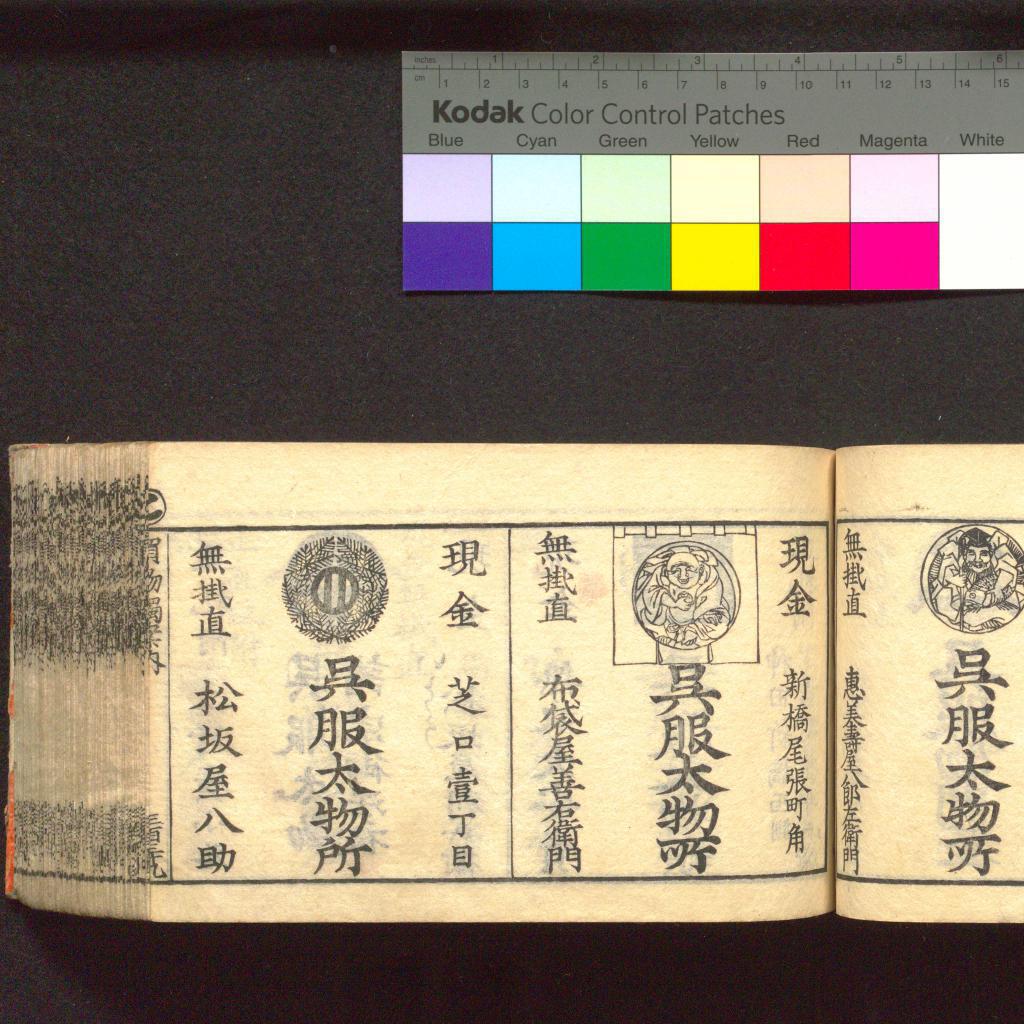 inches 1 2 3 4 5 6
cm 1 2 3 4 5 6 7 8 9 10 11 12 13 14 15
Kodak Color Control Patches
Blue Cyan Green Yellow Red Magenta White
呉服太物所
無掛直
恵美寿屋八郎左衛門
現金
新橋尾張町角
呉服太物所
無掛直
布袋屋善右衛門
現金
芝口壹丁目
呉服太物所
無掛直
松坂屋八助